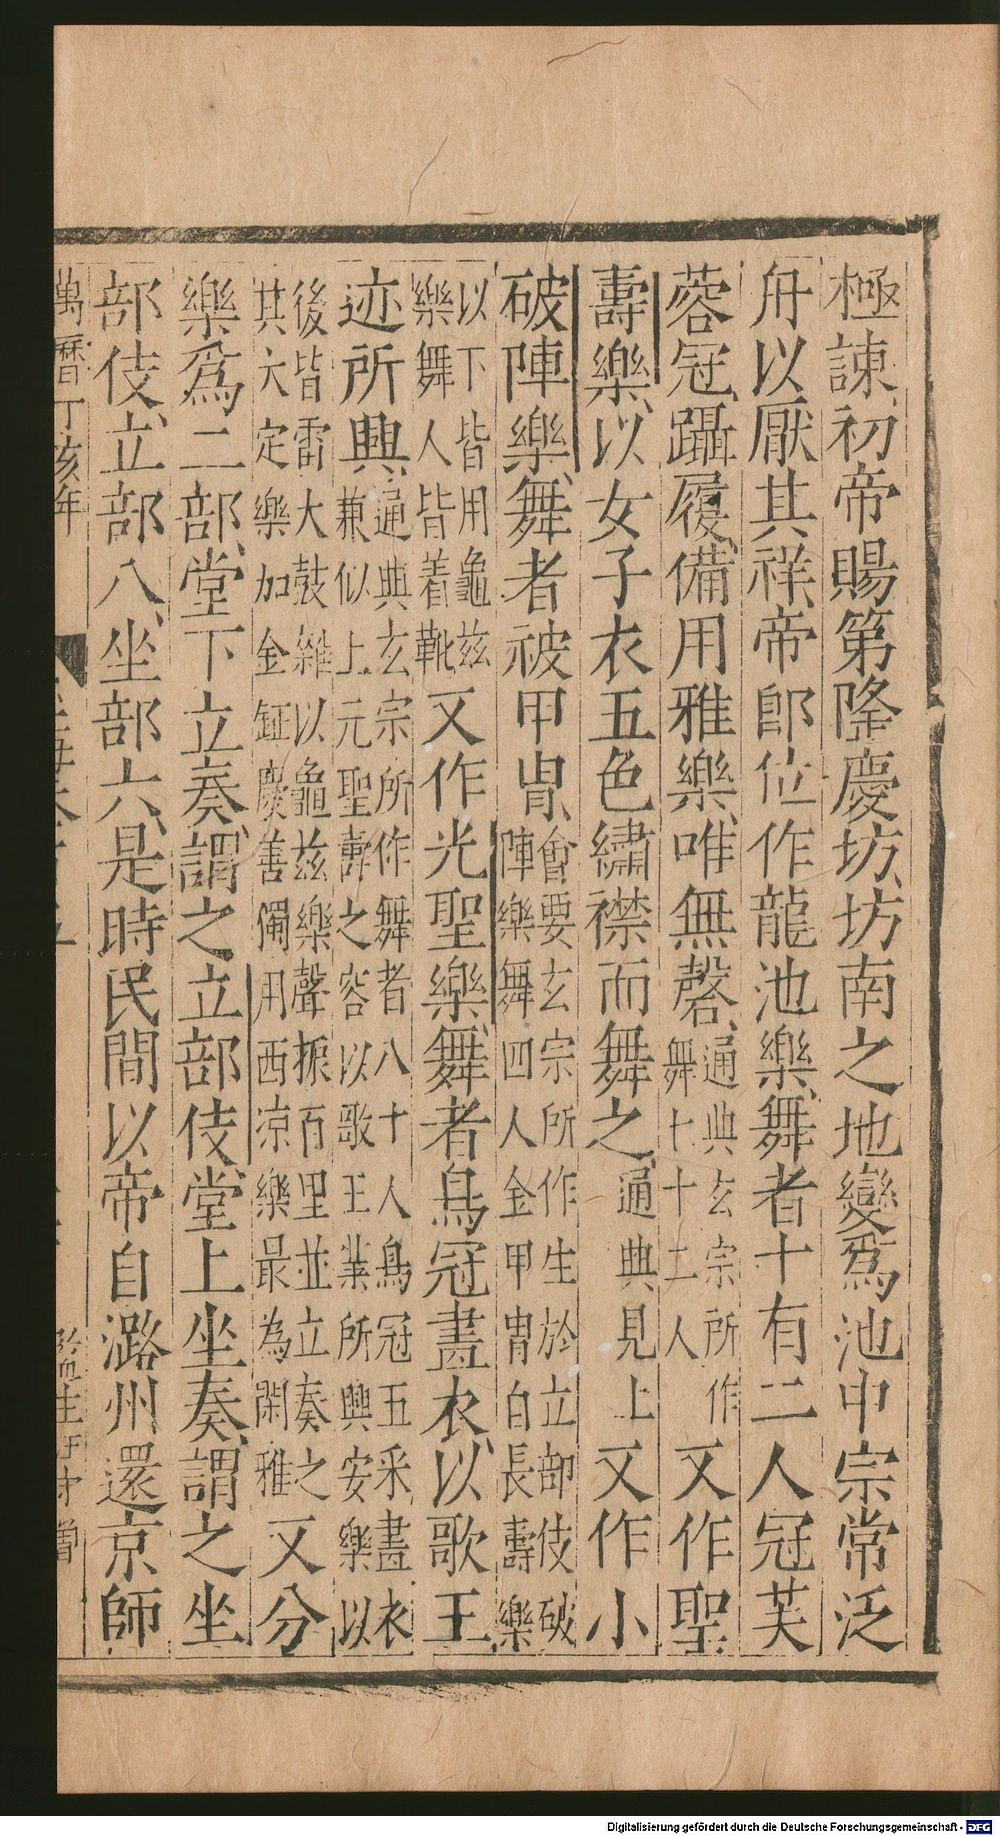 極諫初帝賜第隆慶坊坊南之地變爲池中宗常泛
舟以厭其祥帝卽位作龍池樂舞者十有二人冠芙
蓉冠躡履備用雅樂唯無磬通典玄宗所作舞七十二人又作聖
壽樂以女子衣五色繡襟而舞之通典見上又作小
破陣樂舞者被甲冑會要玄宗所作生於立部伎破陣樂舞四人金甲冑白長壽樂
以下皆用龜茲樂舞人皆着靴又作光聖樂舞者鳥冠畫衣以歌王
迹所興通典玄宗所作舞者八十人鳥冠五采畫衣兼似上元聖壽之容以歌王業所興安樂以
後皆雷大鼓雜以龜茲樂聲振百里並立奏之其大定樂加金鉦慶善僩用西凉樂最為閑雅又分
樂爲二部堂下立奏謂之立部伎堂上坐奏謂之坐
部伎立部八坐部六是時民間以帝自潞州還京師
萬曆丁亥年
Digitalisierung gefördert durch die Deutsche Forschungsgemeinschaft - DFG